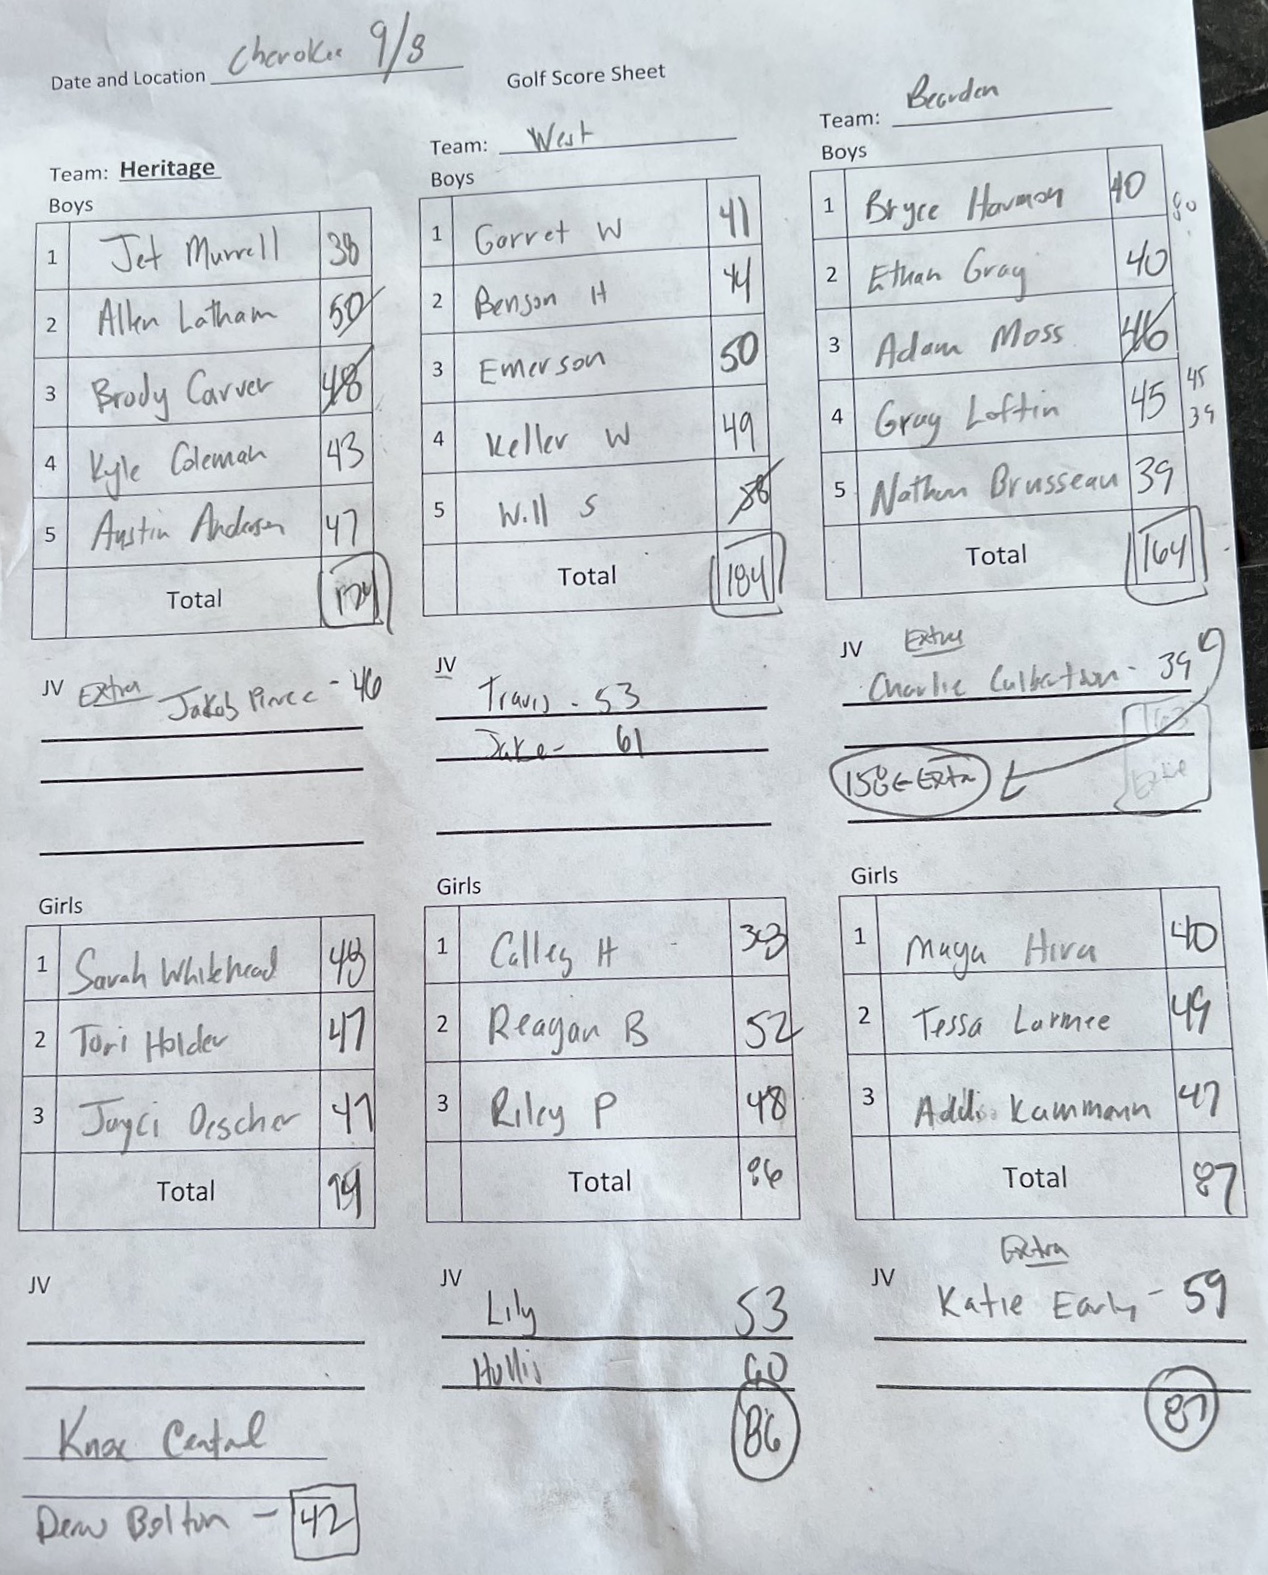 Date and Location Cherokee 9/8
Golf Score Sheet
Team: Heritage
Boys
1 Jet Murrell 38
2 Allen Latham 50
3 Brody Carver 48
4 Kyle Coleman 43
5 Austin Anderson 47
Total
JV Extra Jakob Pierce - 46
Girls
1 Sarah Whitehead 48
2 Tori Holder 47
3 Jayci Oescher 47
Total 94
JV
Knox Central
Drew Bolton - 42
Team: West
Boys
1 Garret W 41
2 Benson H 44
3 Emerson 50
4 Keller W 49
5 Will S 58
Total 184
JV
Travis - 53
Jake - 61
Girls
1 Calley H 38
2 Reagan B 52
3 Riley P 48
Total 86
JV
Lily 53
Hollis 60
86
Team: Bearden
Boys
1 Bryce Harmon 40
80
2 Ethan Gray 40
3 Adam Moss 46
4 Gray Loftin 45
45
39
5 Nathan Brusseau 39
Total 164
JV Extra
Charlie Culbertson - 39
163
Extra
158 ← Extra
Girls
1 Maya Hira 40
2 Tessa Larmee 49
3 Addi Kammann 47
Total 87
Extra
JV Katie Early - 59
87